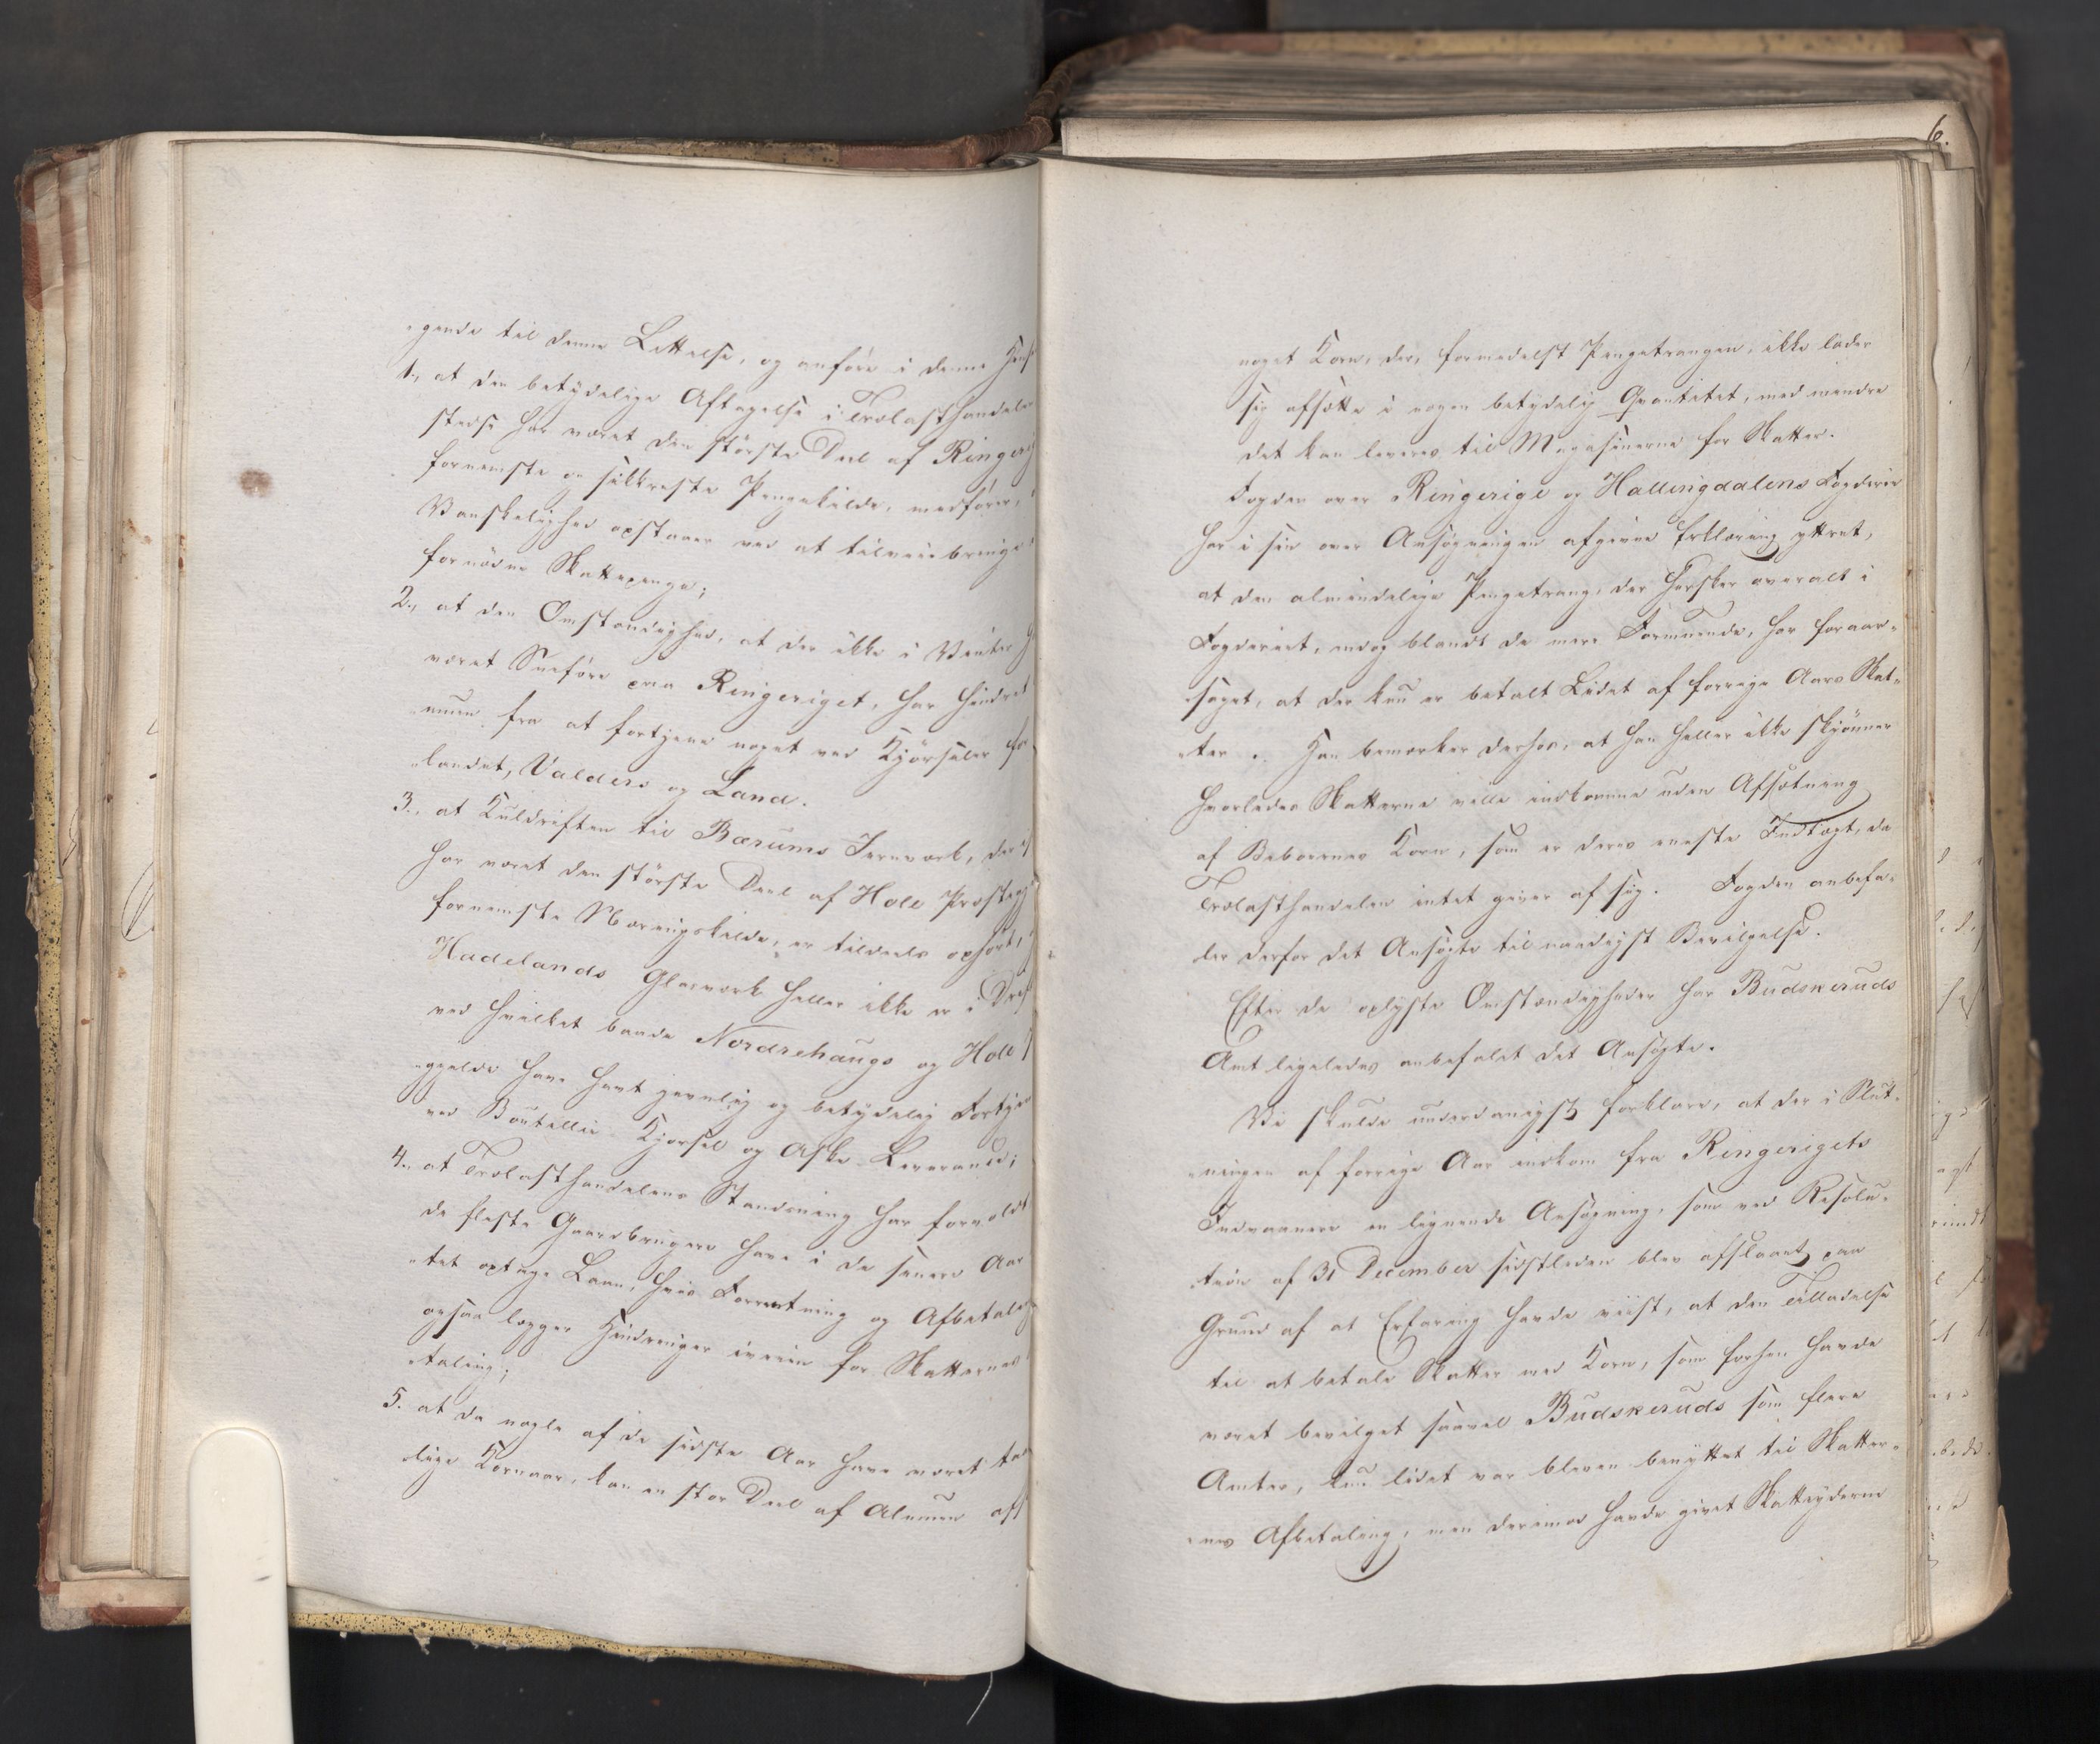 -gende til denne Lettelse, og anføre i denne Hens
1., at den betydelige Aftagelse i Trælasthandelen
stedse har været den største Deel af Ringeri
fornemste og sikkreste Pengekilde, medfører,
Vanskelighed opstaaer ved at tilveiebringe
fornødne Skattepenge;
2., at den Omstændighed, at der ikke i Vinter
været Sneføre paa Ringeriget, har hindret
-muen fra at fortjene noget ved Kjørseler
-landet, Valders og Land.
3., at Kuldriften til Bærums Jernværk, der
har været den største Deel af Hole Præstegj
fornemste Næringskilde, er tildeels ophørt,
Hadelands Glasværk heller ikke er i Drif
ved hvilket baade Nordrehaugs og Hole
-gjelde have havt jevnlig og betydelig Fortjen
ved Boutellie Kjørsel og Aske Leverance;
4., at Trælasthandelens Standsning har forvoldt
de fleste Gaardbrugere have i de senere Aar
-tet optage Laan, hvis Forrentning og Afbetaling
ogsaa lægger Hindringer iveien for Skatternes
-taling;
5. at da nogle af de sidste Aar have været
-lige Kornaar, kan en stor Deel af Almuen
6.
noget Korn, der, formedelst Pengetrangen, ikke lader
sig afsætte i nogen betydelig Qvantitet, med mindre
det kan leveres til Magasinerne for Skatter.
Fogden over Ringerige og Hallingdalens Fogderie
har i sin over Ansøgningen afgivne Erklæring yttret,
at den almindelige Pengetrang, der hersker overalt i
Fogderiet, endog blandt de mere Formuende, har foraar-
-saget, at der kun er betalt Lidet af forrige Aars Skat-
-ter. Han bemærker derhos, at han heller ikke skjønner
hvorledes Skatterne ville indkomme uden Afsætning
af Beboernes Korn, som er deres eneste Indtægt, da
Trælasthandelen intet giver af sig. Fogden anbefa-
ler derfor det Ansøgte til naadigst Bevilgelse.
Efter de oplyste Omstændigheder har Buskeruds
Amt ligeledes anbefalet det Ansøgte.
Vi skulde underdanigst forklare, at der i Slut-
-ningen af forrige Aar indkom fra Ringerigets
Indvaanere en lignende Ansøgning, som ved Resolu-
-tion af 31 December sidstleden blev afslaaet paa
Grund af at Erfaring havde viist, at den Tilladelse
til at betale Skatter med Korn, som forhen havde
været bevilget saavel Buskeruds som flere
Amter, kun lidet var bleven benyttet til Skatter-
-nes Afbetaling, men derimod havde givet Skatteyderne